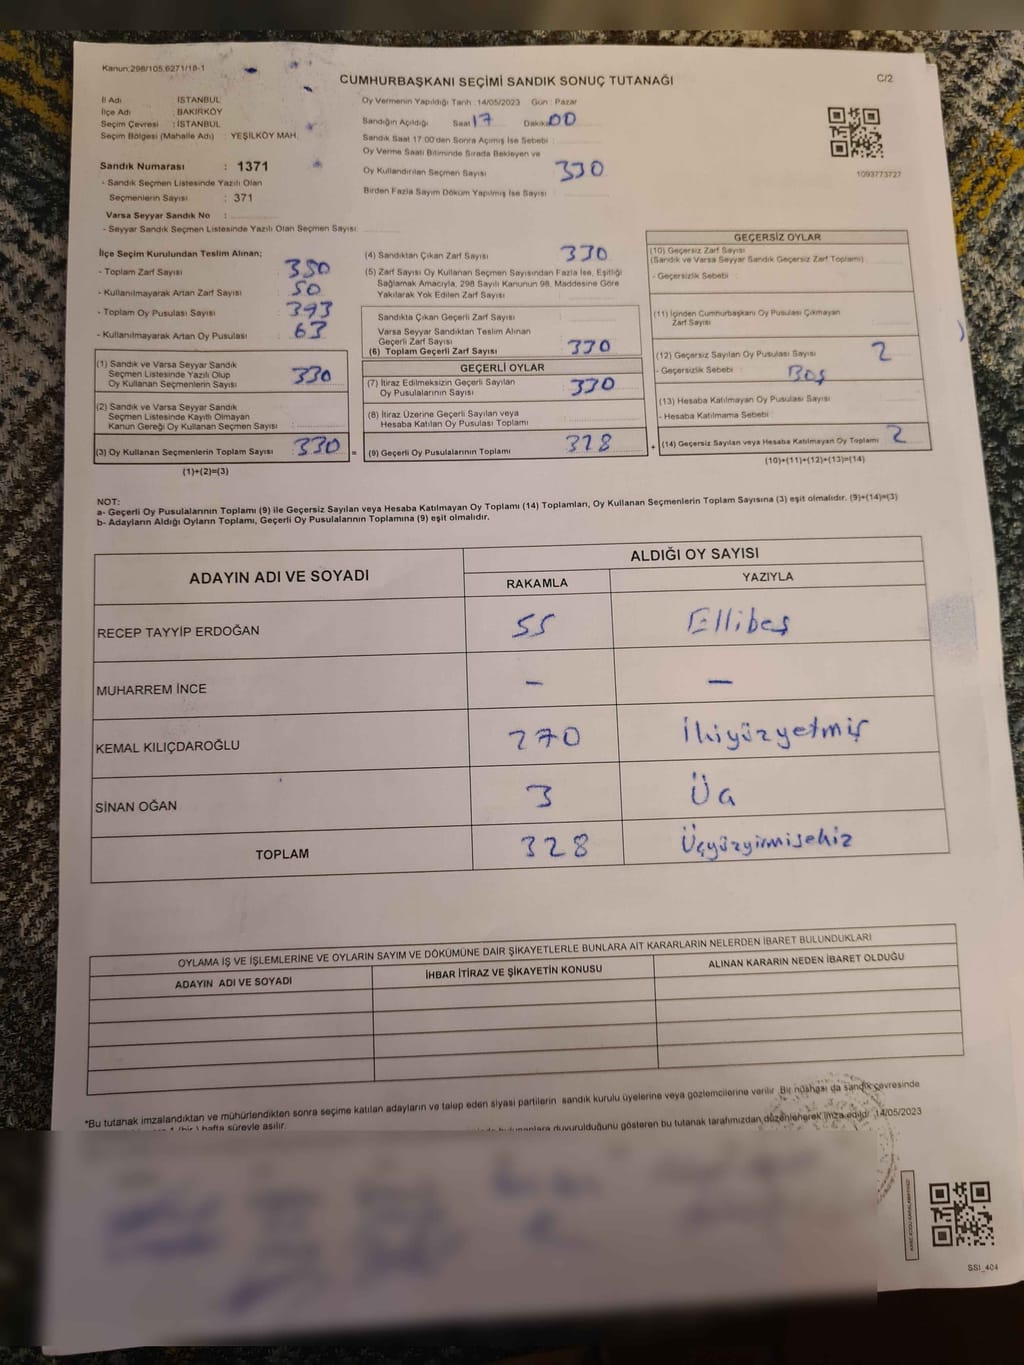 Kanun:298/105,6271/18-1
CUMHURBAŞKANI SEÇİMİ SANDIK SONUÇ TUTANAĞI
C/2
İl Adı : İSTANBUL
İlçe Adı : BAKIRKÖY
Seçim Çevresi : İSTANBUL
Seçim Bölgesi (Mahalle Adı) : YEŞİLKÖY MAH.
Oy Vermenin Yapıldığı Tarih :14/05/2023 Gün : Pazar
Sandığın Açıldığı Saat 17 Dakika 00
Sandık Saat 17:00'den Sonra Açılmış İse Sebebi :
Oy Verme Saati Bitiminde Sırada Bekleyen ve
Oy Kullandırılan Seçmen Sayısı 330
Birden Fazla Sayım Döküm Yapılmış İse Sayısı
1093773727
Sandık Numarası : 1371
- Sandık Seçmen Listesinde Yazılı Olan
Seçmenlerin Sayısı : 371
Varsa Seyyar Sandık No :
- Seyyar Sandık Seçmen Listesinde Yazılı Olan Seçmen Sayısı:
İlçe Seçim Kurulundan Teslim Alınan;
- Toplam Zarf Sayısı 350
- Kullanılmayarak Artan Zarf Sayısı 50
- Toplam Oy Pusulası Sayısı 393
- Kullanılmayarak Artan Oy Pusulası 63
(1) Sandık ve Varsa Seyyar Sandık
Seçmen Listesinde Yazılı Olup
Oy Kullanan Seçmenlerin Sayısı 330
(2) Sandık ve Varsa Seyyar Sandık
Seçmen Listesinde Kayıtlı Olmayan
Kanun Gereği Oy Kullanan Seçmen Sayısı
(3) Oy Kullanan Seçmenlerin Toplam Sayısı 330 =
(1)+(2)=(3)
(4) Sandıktan Çıkan Zarf Sayısı 330
(5) Zarf Sayısı Oy Kullanan Seçmen Sayısından Fazla İse, Eşitliği
Sağlamak Amacıyla, 298 Sayılı Kanunun 98. Maddesine Göre
Yakılarak Yok Edilen Zarf Sayısı
Sandıkta Çıkan Geçerli Zarf Sayısı
Varsa Seyyar Sandıktan Teslim Alınan
Geçerli Zarf Sayısı
(6) Toplam Geçerli Zarf Sayısı 330
GEÇERLİ OYLAR
(7) İtiraz Edilmeksizin Geçerli Sayılan
Oy Pusulalarının Sayısı 330
(8) İtiraz Üzerine Geçerli Sayılan veya
Hesaba Katılan Oy Pusulası Toplamı
(9) Geçerli Oy Pusulalarının Toplamı 328 +
GEÇERSİZ OYLAR
(10) Geçersiz Zarf Sayısı
(Sandık ve Varsa Seyyar Sandık Geçersiz Zarf Toplamı)
- Geçersizlik Sebebi :
(11) İçinden Cumhurbaşkanı Oy Pusulası Çıkmayan
Zarf Sayısı
(12) Geçersiz Sayılan Oy Pusulası Sayısı 2
- Geçersizlik Sebebi : Boş
(13) Hesaba Katılmayan Oy Pusulası Sayısı
- Hesaba Katılmama Sebebi :
(14) Geçersiz Sayılan veya Hesaba Katılmayan Oy Toplamı 2
(10)+(11)+(12)+(13)=(14)
NOT:
a- Geçerli Oy Pusulalarının Toplamı (9) ile Geçersiz Sayılan veya Hesaba Katılmayan Oy Toplamı (14) Toplamları, Oy Kullanan Seçmenlerin Toplam Sayısına (3) eşit olmalıdır. (9)+(14)=(3)
b- Adayların Aldığı Oyların Toplamı, Geçerli Oy Pusulalarının Toplamına (9) eşit olmalıdır.
ADAYIN ADI VE SOYADI
ALDIĞI OY SAYISI
RAKAMLA YAZIYLA
RECEP TAYYİP ERDOĞAN 55 Ellibeş
MUHARREM İNCE - -
KEMAL KILIÇDAROĞLU 270 İkiyüzyetmiş
SİNAN OĞAN 3 Üç
TOPLAM 328 Üçyüzyirmisekiz
OYLAMA İŞ VE İŞLEMLERİNE VE OYLARIN SAYIM VE DÖKÜMÜNE DAİR ŞİKAYETLERLE BUNLARA AİT KARARLARIN NELERDEN İBARET BULUNDUKLARI
ADAYIN ADI VE SOYADI İHBAR İTİRAZ VE ŞİKAYETİN KONUSU ALINAN KARARIN NEDEN İBARET OLDUĞU
*Bu tutanak imzalandıktan ve mühürlendikten sonra seçime katılan adayların ve talep eden siyasi partilerin sandık kurulu üyelerine veya gözlemcilerine verilir. Bir nüshası da sandık çevresinde
1 (bir) hafta süreyle asılır.
duyurulduğunu gösteren bu tutanak tarafımızdan düzenlenerek imza edildi. 14/05/2023
SSI_404